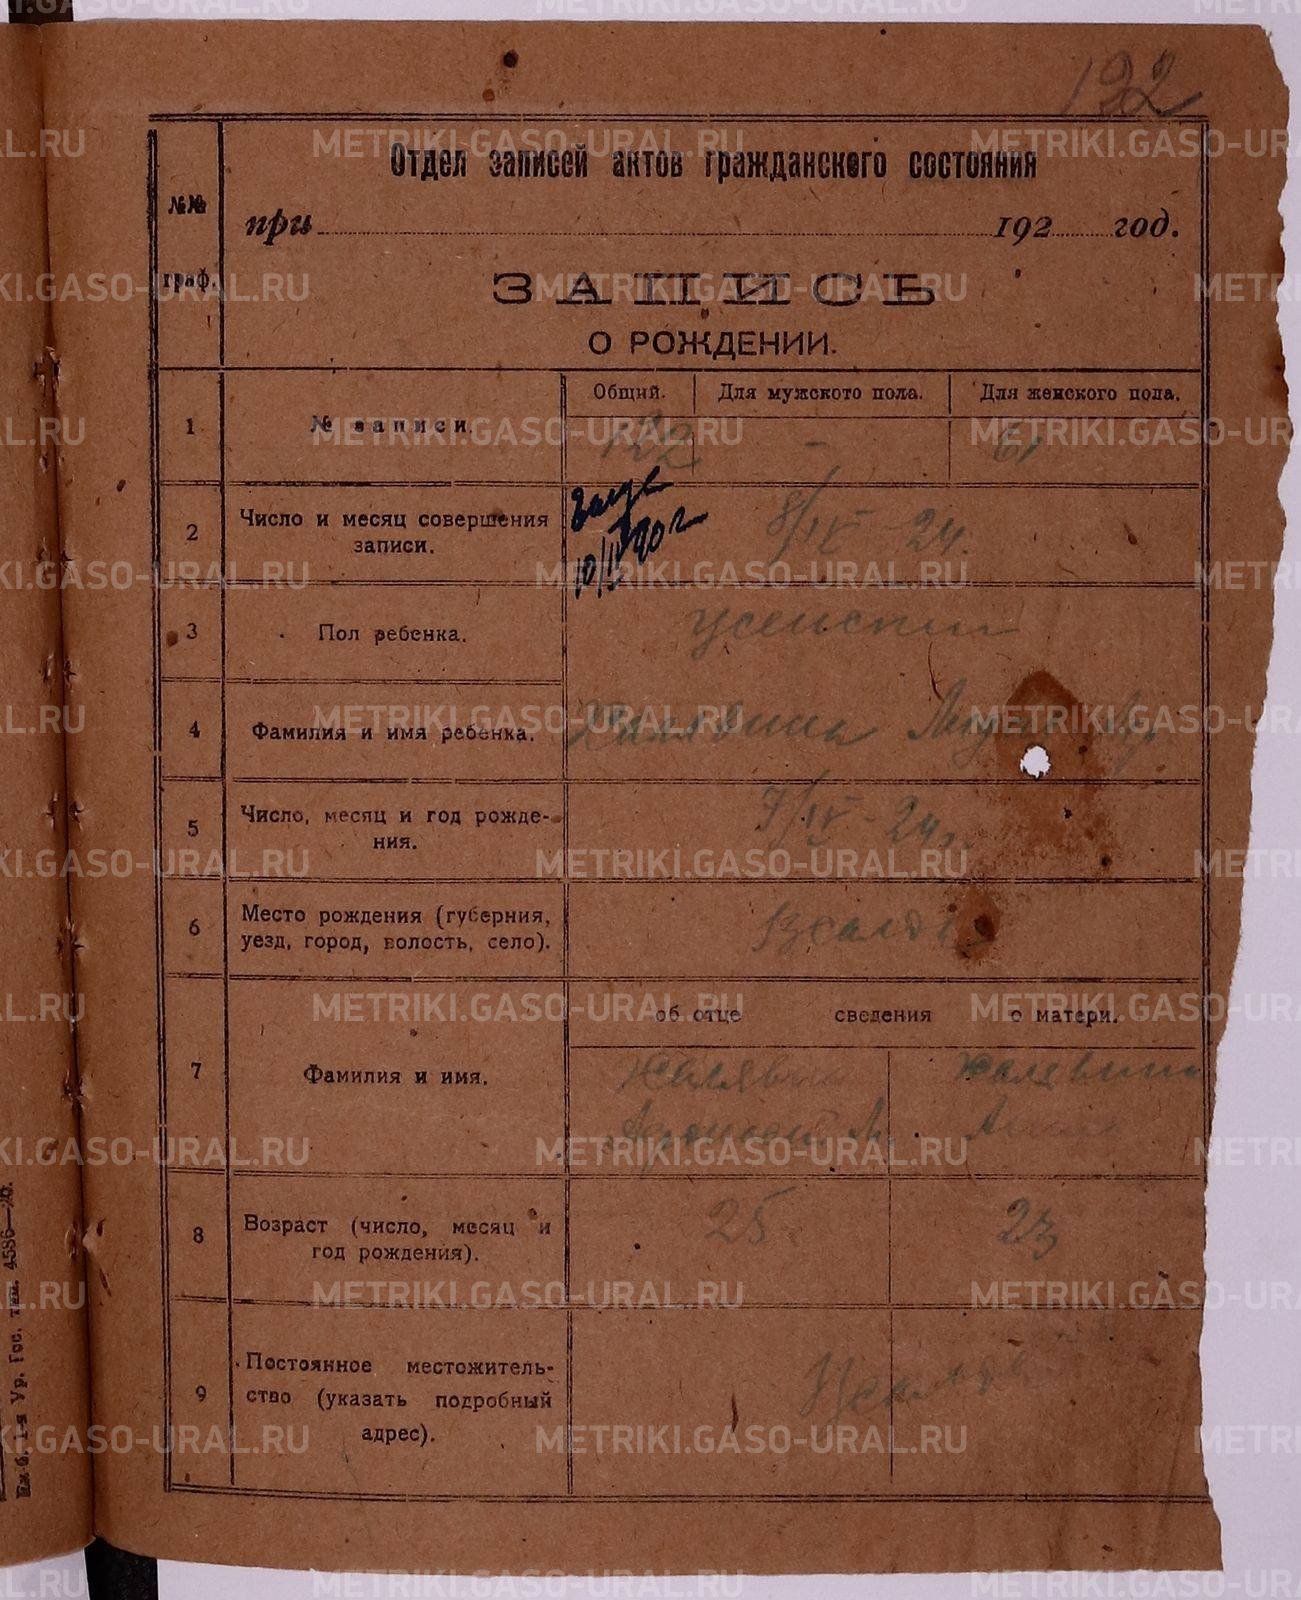 122
№№
граф.
Отдел записей актов гражданского состояния
при 192 год.
ЗАПИСЬ
О РОЖДЕНИИ.
1
№ записи.
Общий. Для мужского пола. Для женского пола.
122 - 61
2
Число и месяц совершения
записи.
8/IV 24.
10/IV 90 г
3
Пол ребенка.
женский
4
Фамилия и имя ребенка.
Халявина
5
Число, месяц и год рожде-
ния.
7/IV - 24 г.
6
Место рождения (губерния,
уезд, город, волость, село).
7
Фамилия и имя.
об отце сведения о матери.
Халявин Халявина
Анна
8
Возраст (число, месяц и
год рождения).
25 23
9
Постоянное местожитель-
ство (указать подробный
адрес).
1-я Ур. Гос. тип. 4586
METRIKI.GASO-URAL.RU